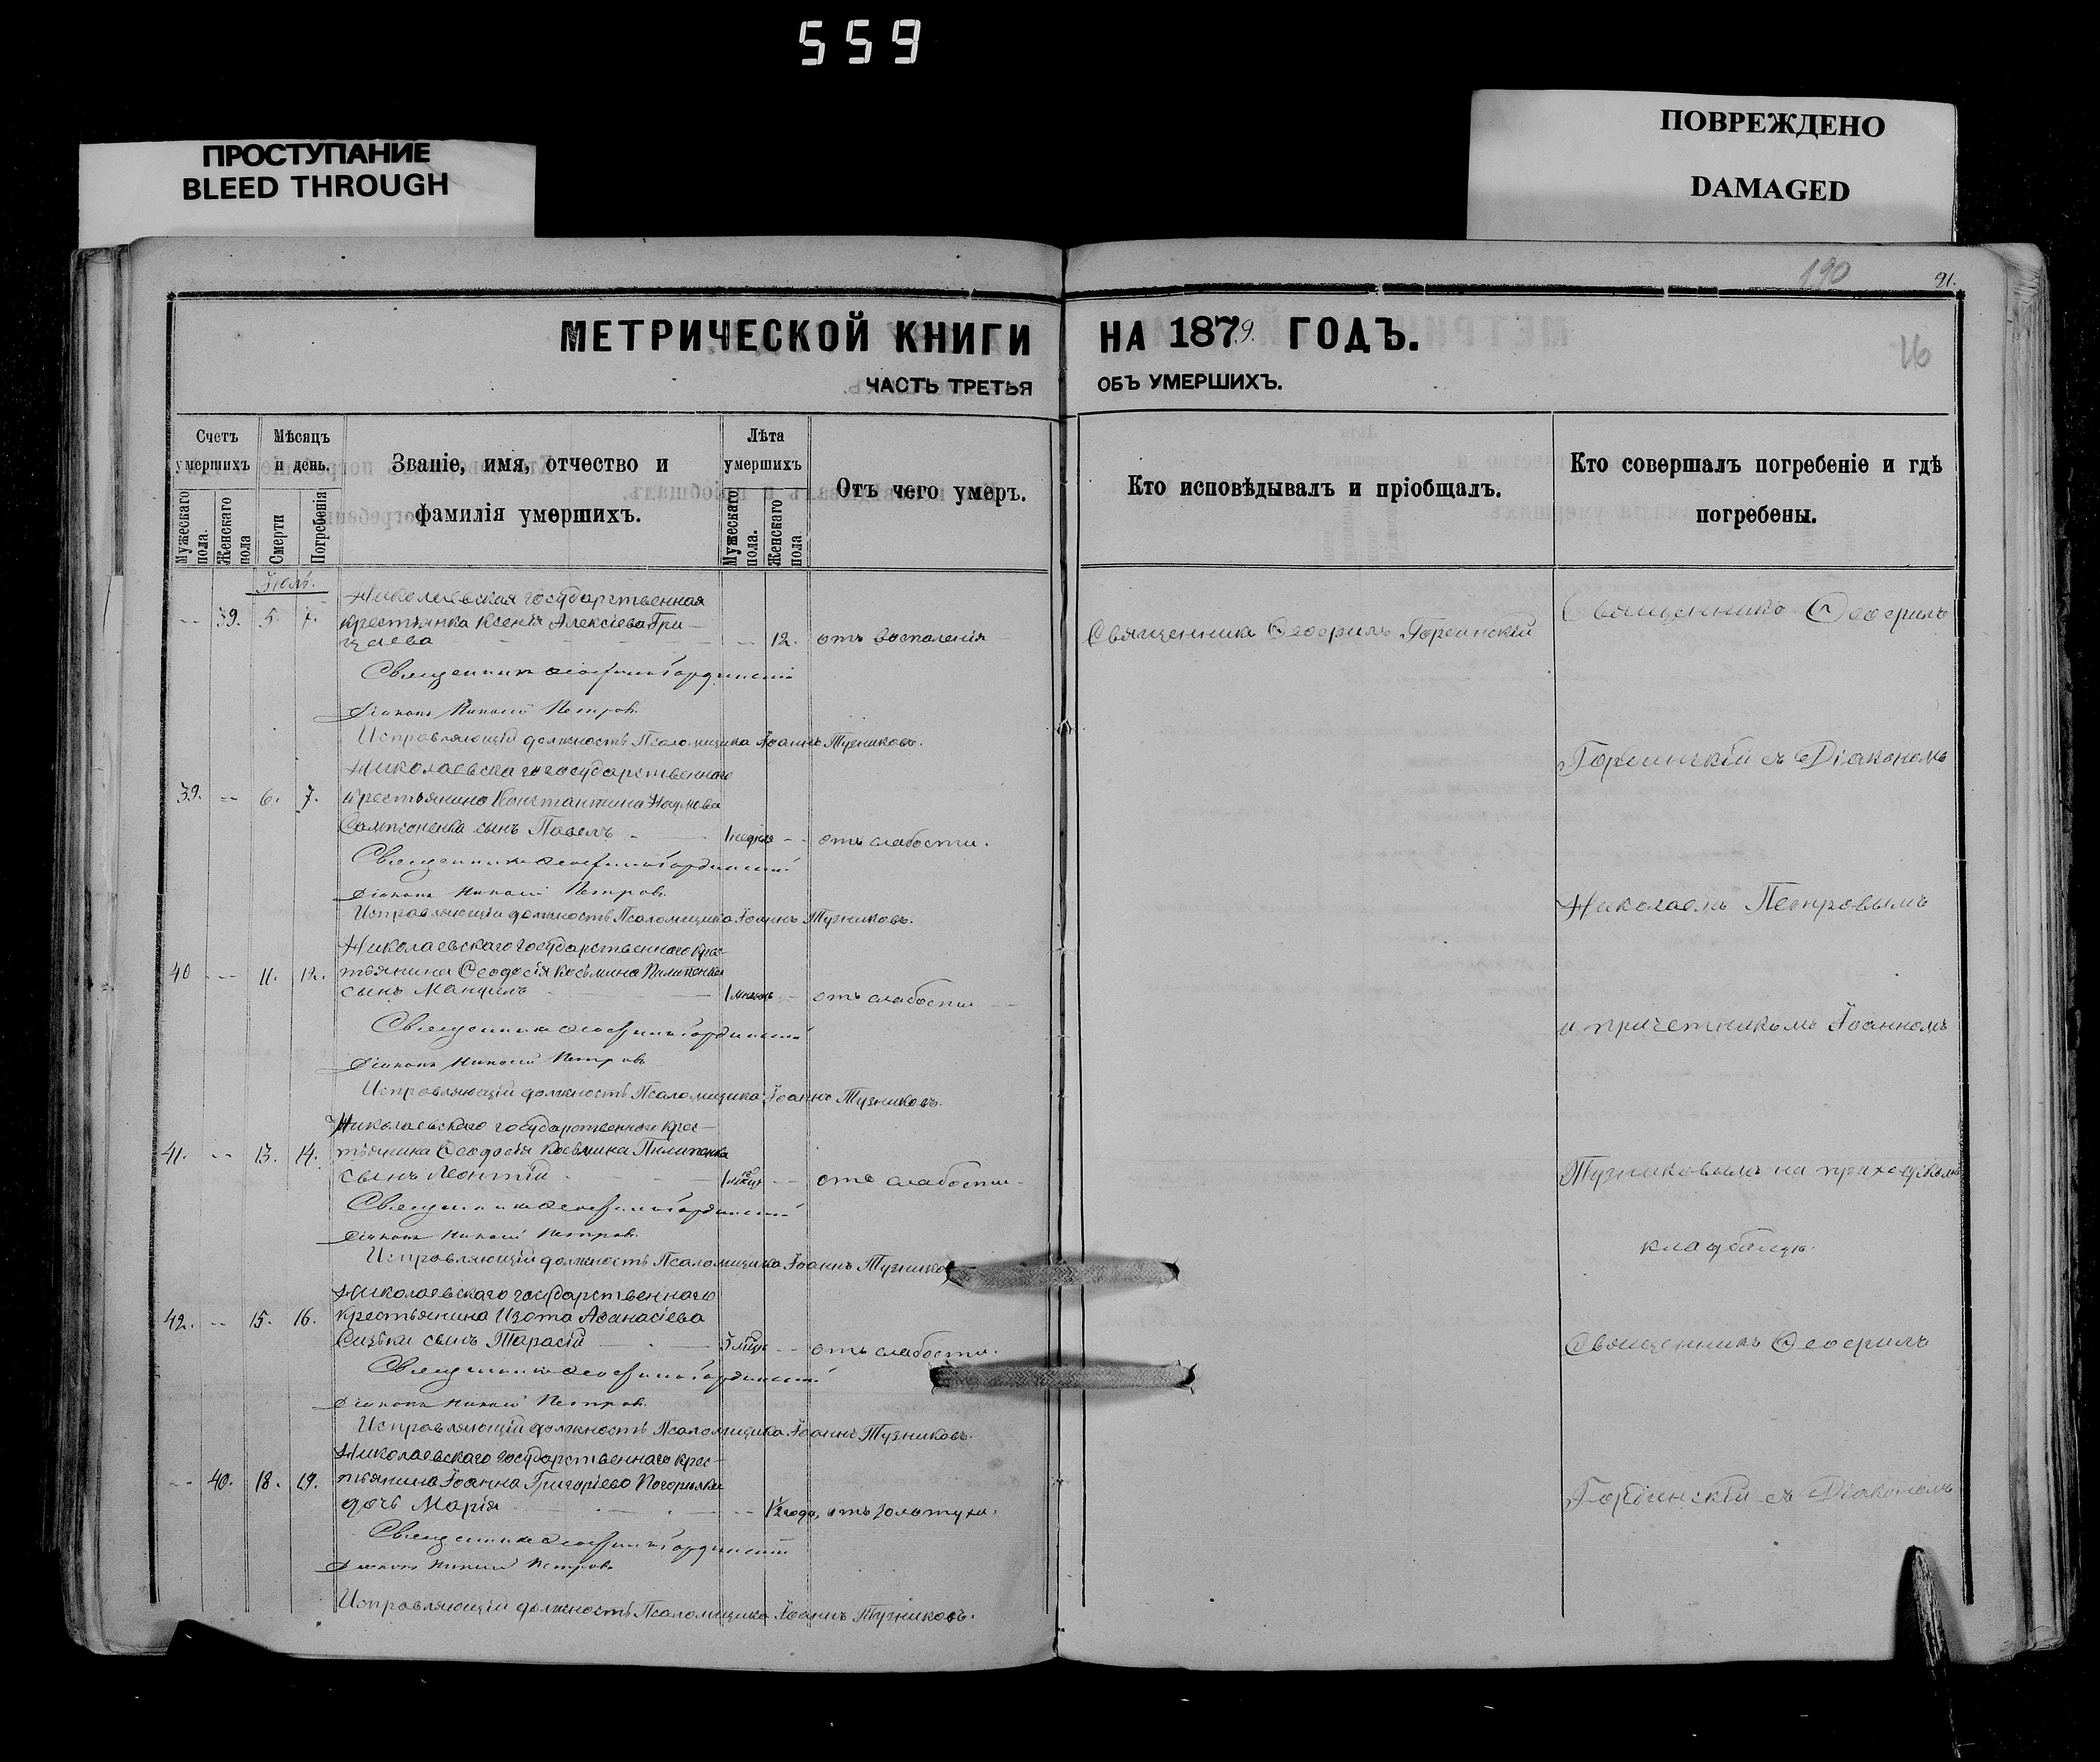 559
ПРОСТУПАНИЕ
BLEED THROUGH
ПОВРЕЖДЕНО
DAMAGED
190
91.
МЕТРИЧЕСКОЙ КНИГИ НА 1879. ГОДЪ.
16
ЧАСТЬ ТРЕТЬЯ ОБЪ УМЕРШИХЪ.
Счетъ умершихъ
Мужескаго пола.
Женскаго пола
Мѣсяцъ и день.
Смерти
Погребенія
Званіе, имя, отчество и
фамилія умершихъ.
Лѣта умершихъ
Мужескаго пола.
Женскаго пола
Отъ чего умеръ.
Кто исповѣдывалъ и пріобщалъ.
Кто совершалъ погребеніе и гдѣ
погребены.
Іюль.
Николаевская государственная
-- 39. 5. 7. крестьянка Ксенія Алексіева Гри-
цаева -- 12. отъ воспаленія
Священникъ Ѳеофилъ Гординскій
Діаконъ Николай Петровъ.
Исправляющій должность Псаломщика Іоаннъ Тузниковъ.
Николаевскаго государственнаго
39. -- 6. 7. крестьянина Константина Наумова
Сампсоненка сынъ Павелъ 1 недѣля -- отъ слабости.
Священникъ Ѳеофилъ Гординскій
Діаконъ Николай Петровъ.
Исправляющій должность Псаломщика Іоаннъ Тузниковъ.
Николаевскаго государственнаго крес-
40 -- 11. 12. тьянина Ѳеодосія Косьмина Пилипенка
сынъ Мануилъ 1 -- отъ слабости
Священникъ Ѳеофилъ Гординскій
Діаконъ Николай Петровъ
Исправляющій должность Псаломщика Іоаннъ Тузниковъ.
Николаевскаго государственнаго крес-
41. -- 13. 14. тьянина Ѳеодосія Косьмина Пилипенка
сынъ Леонтій 1 -- отъ слабости
Священникъ Ѳеофилъ Гординскій
Діаконъ Николай Петровъ.
Исправляющій должность Псаломщика Іоаннъ Тузнико
Николаевскаго государственнаго
42. -- 15. 16. крестьянина Изота Аѳанасіева
сынъ Тарасій -- отъ слабости.
Священникъ Ѳеофилъ Гординскій
Діаконъ Николай Петровъ.
Исправляющій должность Псаломщика Іоаннъ Тузниковъ.
Николаевскаго государственнаго крес-
-- 40. 18. 19. тьянина Іоанна Григоріева
дочь Марія -- 1½ года, отъ золотухи.
Священникъ Ѳеофилъ Гординскій
Діаконъ Николай Петровъ
Исправляющій должность Псаломщика Іоаннъ Тузниковъ.
Священника Ѳеофилъ Гординскій
Священникъ Ѳеофилъ
Гординскій съ Діакономъ
Николаемъ Петровымъ
и причетникомъ Іоанномъ
Тузниковымъ на приходскомъ
кладбищѣ.
Священникъ Ѳеофилъ
Гординскій съ Діакономъ